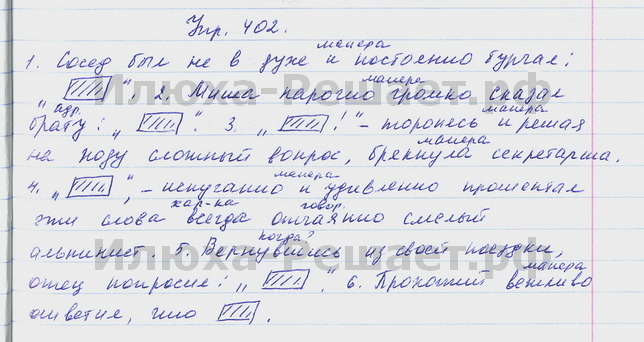 Упр. 402.
манера
1. Сосед был не в духе и постоянно бурчал:
манера
" ". 2. Миша нарочно громко сказал
адр. манера
брату: " ". 3. " !" - торопясь и решая
манера
на ходу сложный вопрос, брякнула секретарша.
манера
4. " ", - испуганно и удивленно прошептал
хар-ка говор.
эти слова всегда отчаянно смелый
когда?
альпинист. 5. Вернувшись из своей поездки,
манера
отец попросил: " ". 6. Прохожий вежливо
ответил, что .
Илюха-Решает.рф
Илюха-Решает.рф